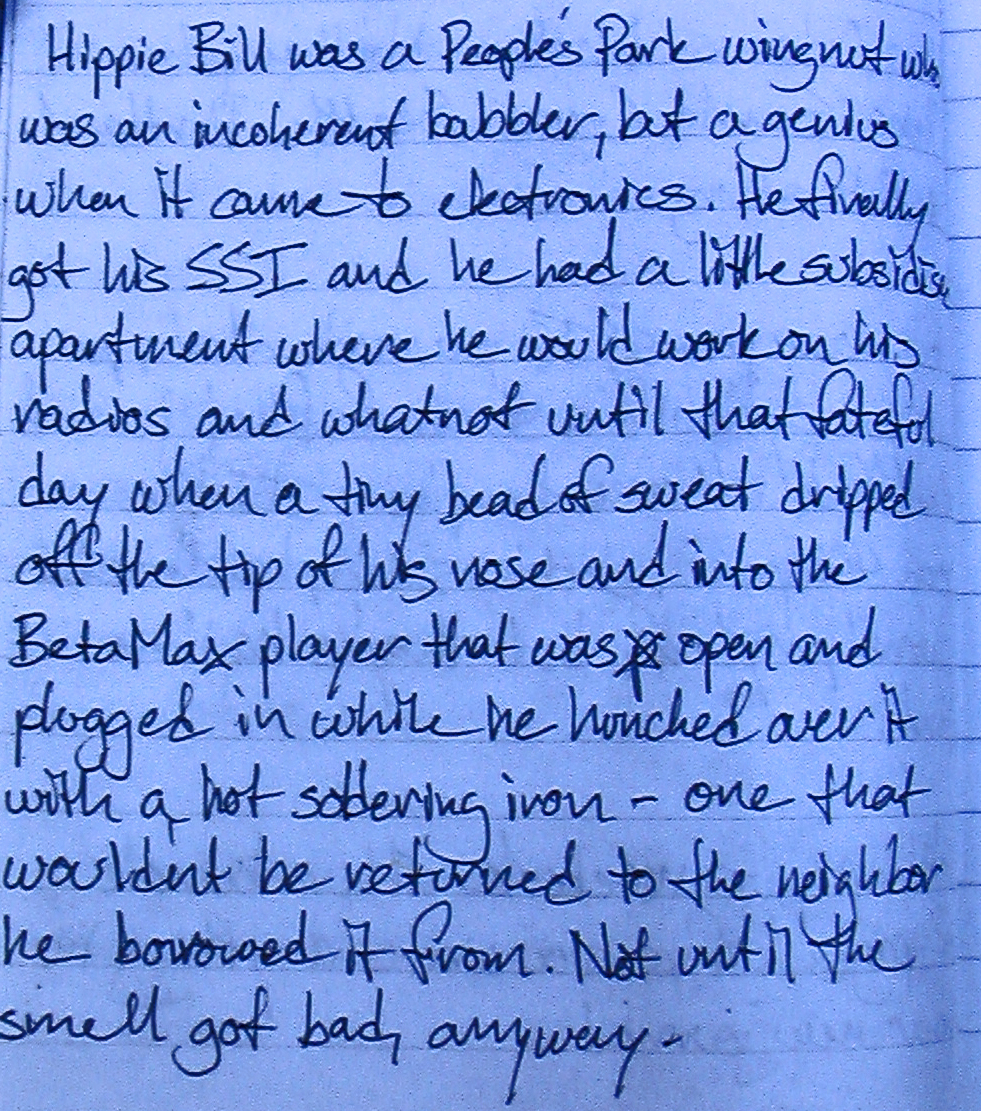 Hippie Bill was a People's Park wingnut who
was an incoherent babbler, but a genius
when it came to electronics. He finally
got his SSI and he had a little
apartment where he would work on his
radios and whatnot until that fateful
day when a tiny bead of sweat dripped
off the tip of his nose and into the
BetaMax player that was open and
plugged in while he hunched over it
with a hot soldering iron - one that
wouldn't be returned to the neighbor
he borrowed it from. Not until the
smell got bad, anyway.